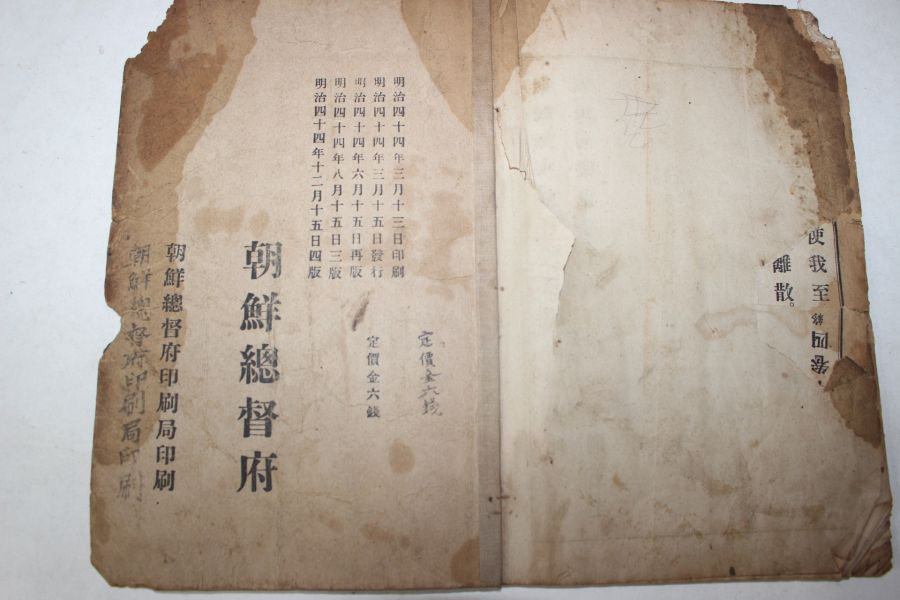 使我至
卷四終
離散。
定價金六錢
明治四十四年三月十三日印刷
明治四十四年三月十五日發行
定價金六錢
明治四十四年六月十五日再版
明治四十四年八月十五日三版
明治四十四年十二月十五日四版
朝鮮總督府
朝鮮總督府印刷局印刷
朝鮮總督府印刷局印刷